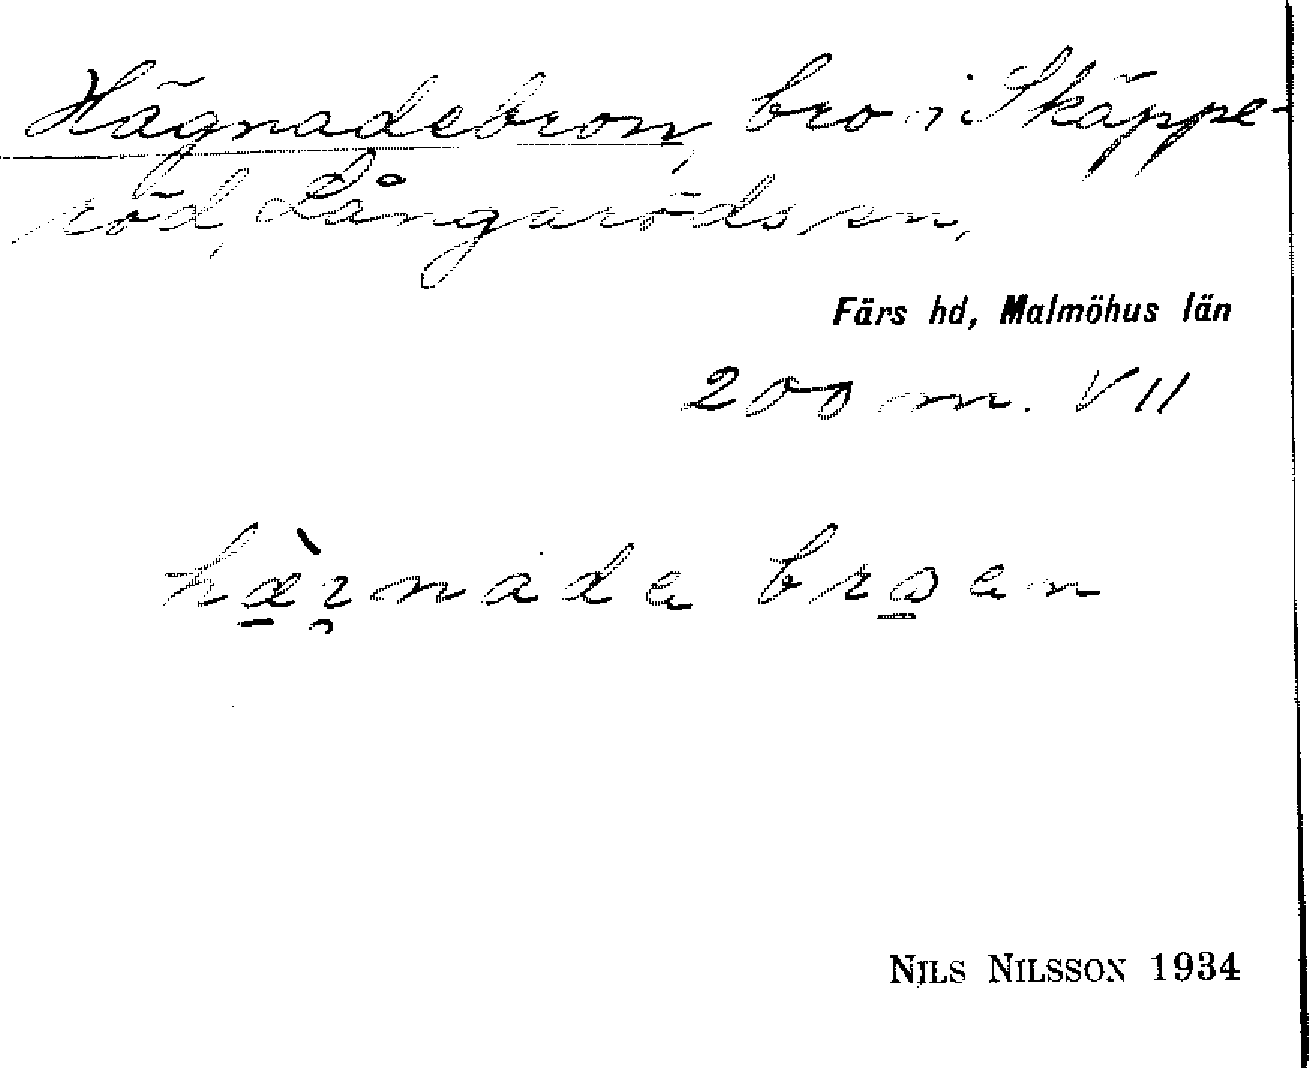 Hägnadebron, bro i Skäppe-
röd, Långaröds sn,
Färs hd, Malmöhus län
200 m. VII
hæ̀i̯nade broen
NILS NILSSON 1934